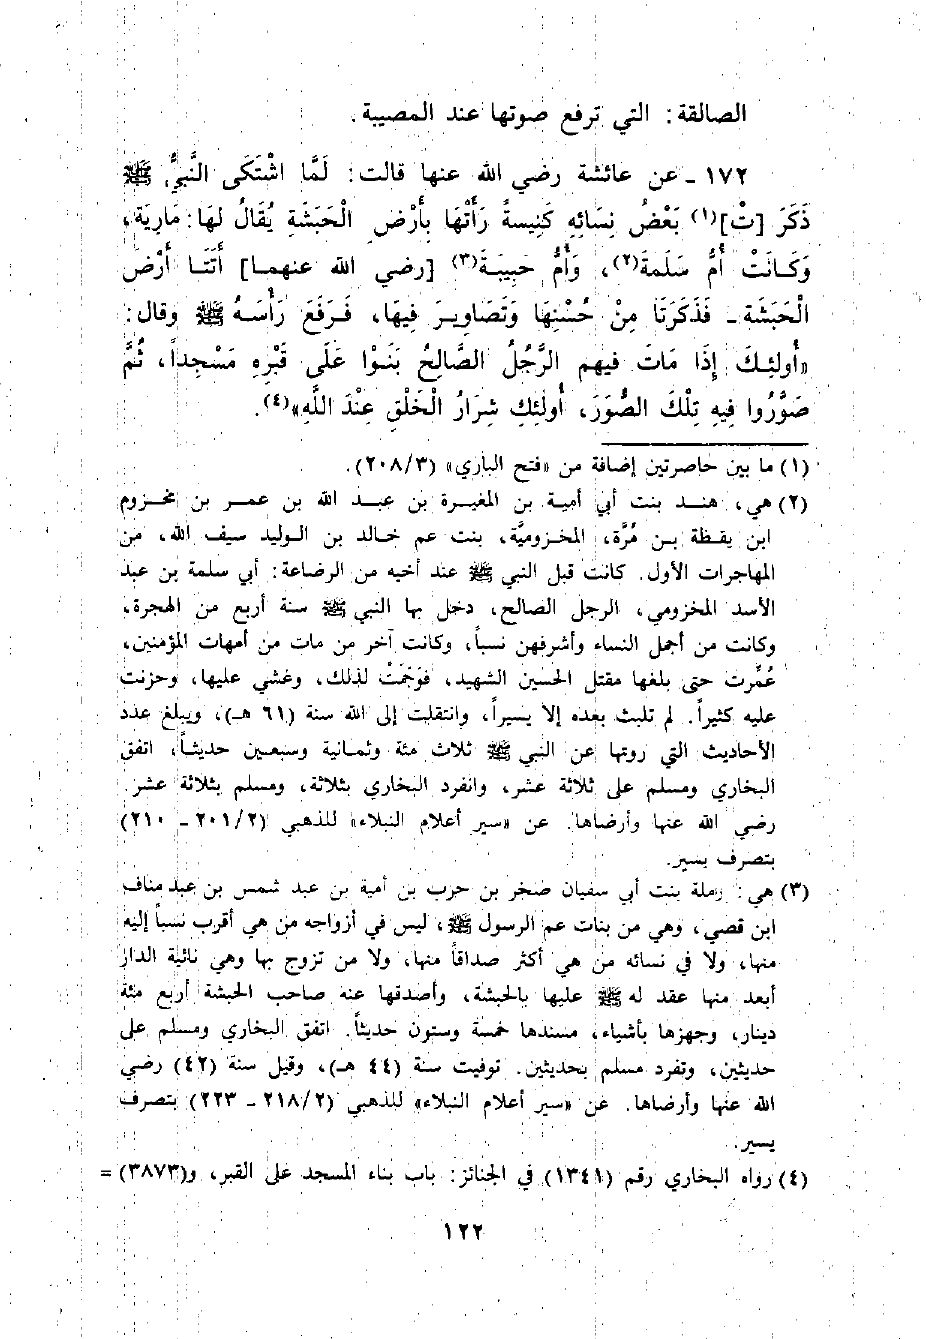 الصالقة: التي ترفع صوتها عند المصيبة.
١٧٢ ـ عن عائشة رضي الله عنها قالت: لَمَّا اشْتَكَى النَّبيُّ ﷺ
ذَكَرَ [تْ](١) بَعْضُ نِسَائِهِ كَنِيسةً رَأَتْهَا بِأَرْضِ الْحَبَشَةِ يُقَالُ لهَا: مَارِيَة،
وَكَانَتْ أُمُّ سَلَمة(٢)، وَأُمُّ حَبِيبَة(٣) [رضي الله عنهما] أَتَتَا أَرْضَ
الْحَبَشَة ـ فَذَكَرَتَا مِنْ حُسْنِهَا وَتَصَاوِيرَ فِيهَا، فَرَفَعَ رَأْسَهُ ﷺ وقال:
«أُولئِكَ إِذَا مَاتَ فيهم الرَّجُلُ الصَّالِحُ بَنَوْا عَلَى قَبْرِهِ مَسْجِداً، ثُمَّ
صَوَّرُوا فِيهِ تِلْكَ الصُّوَرَ، أُولَئِكِ شِرَارُ الْخَلْقِ عِنْدَ اللَّهِ»(٤).
(١) ما بين حاصرتين إضافة من «فتح الباري» (٢٠٨/٣).
(٢) هي، هند بنت أبي أمية بن المغيرة بن عبد الله بن عمر بن مخزوم
ابن يقظة بن مُرَّة، المخزوميَّة، بنت عم خالد بن الوليد سيف الله، من
المهاجرات الأول. كانت قبل النبي ﷺ عند أخيه من الرضاعة: أبي سلمة بن عبد
الأسد المخزومي، الرجل الصالح، دخل بها النبي ﷺ سنة أربع من الهجرة،
وكانت من أجمل النساء وأشرفهن نسباً، وكانت آخر من مات من أمهات المؤمنين،
عُمِّرت حتى بلغها مقتل الحسين الشهيد، فَوَجَمَتْ لذلك، وغشي عليها، وحزنت
عليه كثيراً. لم تلبث بعده إلا يسيراً، وانتقلت إلى الله سنة (٦١ هـ)، ويبلغ عدد
الأحاديث التي روتها عن النبي ﷺ ثلاث مئة وثمانية وسبعين حديثاً، اتفق
البخاري ومسلم على ثلاثة عشر، وانفرد البخاري بثلاثة، ومسلم بثلاثة عشر.
رضي الله عنها وأرضاها. عن «سير أعلام النبلاء» للذهبي (٢٠١/٢ ـ ٢١٠)
بتصرف يسير.
(٣) هي: رملة بنت أبي سفيان صخر بن حرب بن أمية بن عبد شمس بن عبد مناف
ابن قصي، وهي من بنات عم الرسول ﷺ، ليس في أزواجه من هي أقرب نسباً إليه
منها، ولا في نسائه من هي أكثر صداقاً منها، ولا من تزوج بها وهي نائية الدار
أبعد منها عقد له ﷺ عليها بالحبشة، وأصدقها عنه صاحب الحبشة أربع مئة
دينار، وجهزها بأشياء، مسندها خمسة وستون حديثاً. اتفق البخاري ومسلم على
حديثين، وتفرد مسلم بحديثين. توفيت سنة (٤٤ هـ)، وقيل سنة (٤٢) رضي
الله عنها وأرضاها. عن «سير أعلام النبلاء» للذهبي (٢١٨/٢ ـ ٢٢٣) بتصرف
يسير.
(٤) رواه البخاري رقم (١٣٤١) في الجنائز: باب بناء المسجد على القبر، و(٣٨٧٣) =
١٢٢